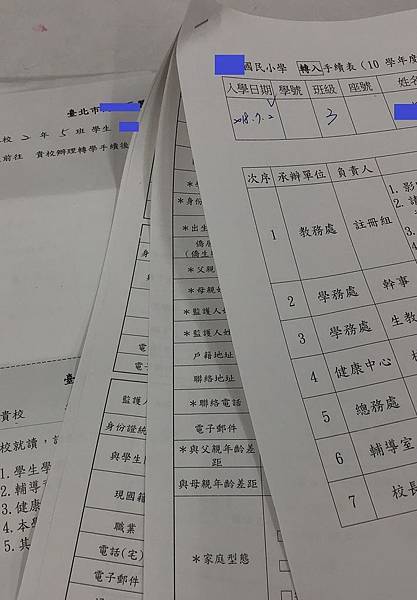 國民小學 轉入 手續表 (10 學年度
入學日期 學號 班級 座號 姓名
2018.7.2 3
次序 承辦單位 負責人
1 教務處 註冊組
1. 影
2. 請
3.
2 學務處 幹事
3 學務處 生教
4 健康中心
5 總務處
6 輔導室
7 校長
*身份
*出生
僑居
(僑生
*父親
*母親姓
*監護人姓
*監護人
戶籍地址
聯絡地址
*聯絡電話
電子郵件
*與父親年齡差
距
與母親年齡差距
*家庭型態
監護人
身份證統
與學生
現國籍
職業
電話(宅)
電子郵件
臺北市
校 2 年 5 班 學生
前往 貴校辦理轉學手續後
臺
貴校
校就讀,
1. 學生學
2. 輔導
3. 健康
4. 本
5. 其